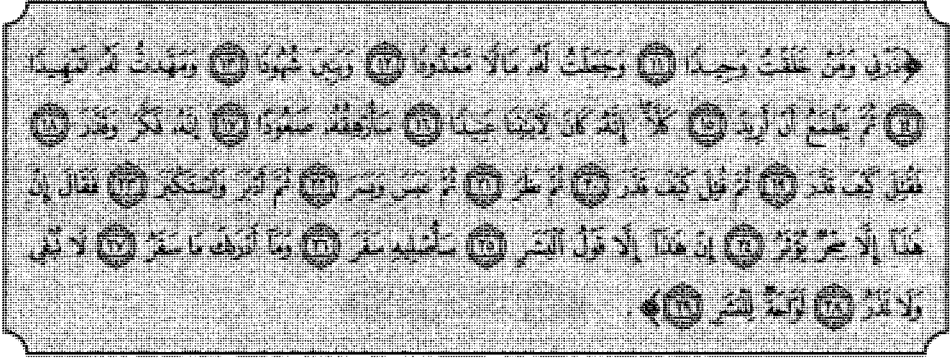 ﴿ذَرْنِي وَمَنْ خَلَقْتُ وَحِيدًا ﴿١١﴾ وَجَعَلْتُ لَهُ مَالًا مَمْدُودًا ﴿١٢﴾ وَبَنِينَ شُهُودًا ﴿١٣﴾ وَمَهَّدْتُ لَهُ تَمْهِيدًا
﴿١٤﴾ ثُمَّ يَطْمَعُ أَنْ أَزِيدَ ﴿١٥﴾ كَلَّا إِنَّهُ كَانَ لِآيَاتِنَا عَنِيدًا ﴿١٦﴾ سَأُرْهِقُهُ صَعُودًا ﴿١٧﴾ إِنَّهُ فَكَّرَ وَقَدَّرَ ﴿١٨﴾
فَقُتِلَ كَيْفَ قَدَّرَ ﴿١٩﴾ ثُمَّ قُتِلَ كَيْفَ قَدَّرَ ﴿٢٠﴾ ثُمَّ نَظَرَ ﴿٢١﴾ ثُمَّ عَبَسَ وَبَسَرَ ﴿٢٢﴾ ثُمَّ أَدْبَرَ وَاسْتَكْبَرَ ﴿٢٣﴾ فَقَالَ إِنْ
هَذَا إِلَّا سِحْرٌ يُؤْثَرُ ﴿٢٤﴾ إِنْ هَذَا إِلَّا قَوْلُ الْبَشَرِ ﴿٢٥﴾ سَأُصْلِيهِ سَقَرَ ﴿٢٦﴾ وَمَا أَدْرَاكَ مَا سَقَرُ ﴿٢٧﴾ لَا تُبْقِي
وَلَا تَذَرُ ﴿٢٨﴾ لَوَّاحَةٌ لِلْبَشَرِ ﴿٢٩﴾﴾.